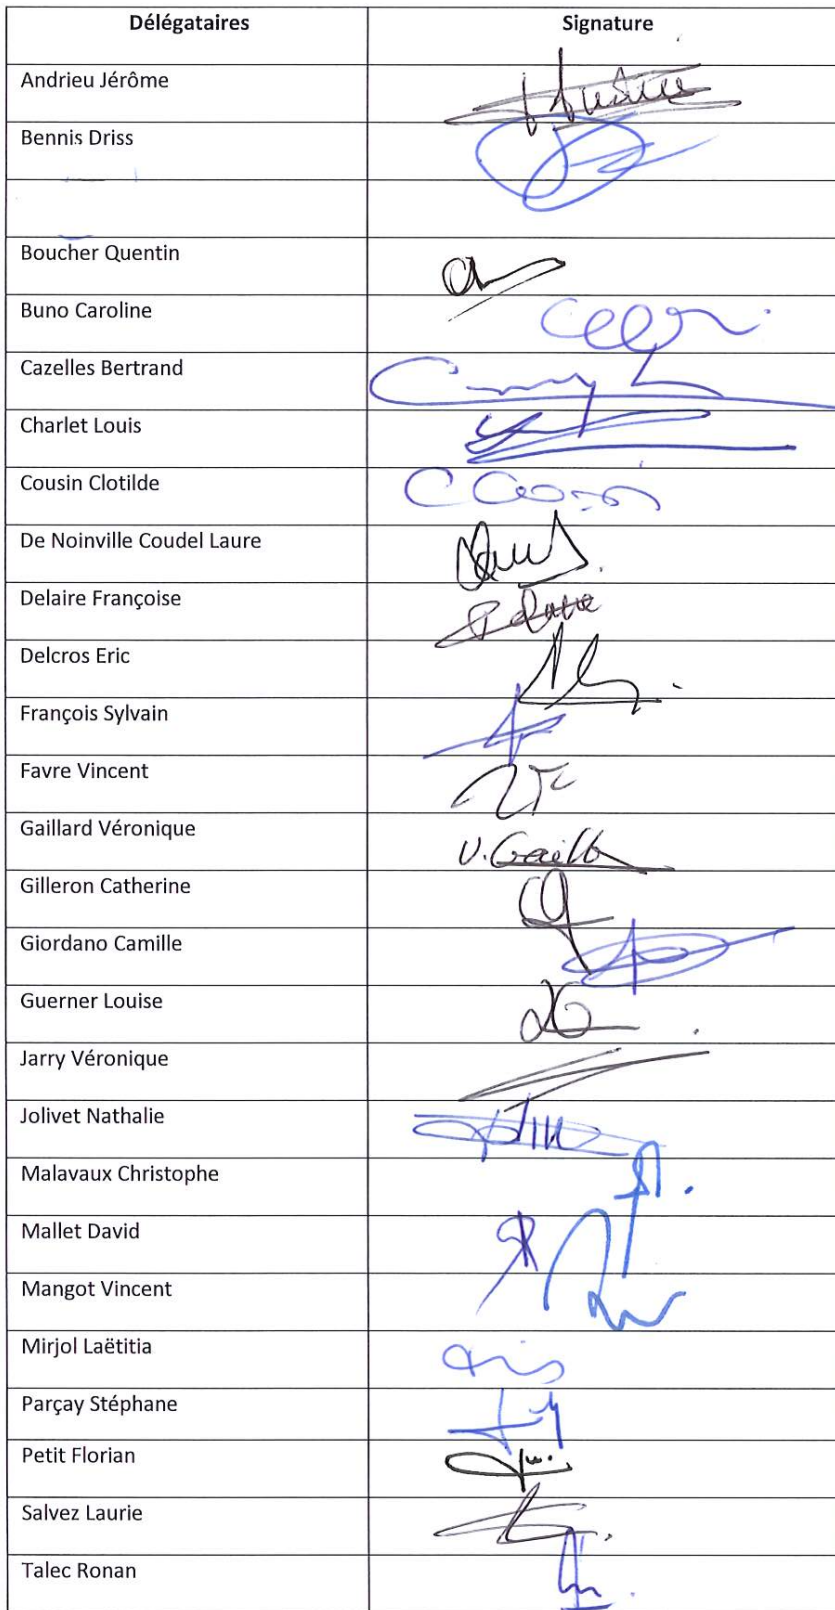 Délégataires Signature
Andrieu Jérôme
Bennis Driss
Boucher Quentin
Buno Caroline
Cazelles Bertrand
Charlet Louis
Cousin Clotilde
De Noinville Coudel Laure
Delaire Françoise
Delcros Eric
François Sylvain
Favre Vincent
Gaillard Véronique V. Gaill
Gilleron Catherine
Giordano Camille
Guerner Louise
Jarry Véronique
Jolivet Nathalie
Malavaux Christophe
Mallet David
Mangot Vincent
Mirjol Laëtitia
Parçay Stéphane
Petit Florian
Salvez Laurie
Talec Ronan